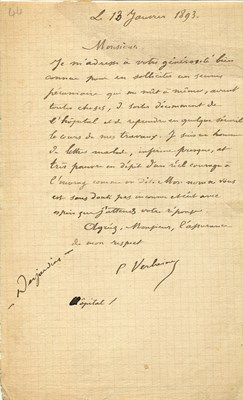 44
Le 13 Janvier 1893.
Monsieur
Je m'adresse à votre générosité bien
connue pour en solliciter un secours
pécuniaire qui me mît à même, avant
toutes choses, de sortir décemment de
l'hôpital et de reprendre en quelque sécurité
le cours de mes travaux. Je suis un homme
de lettres malade, infirme presque, et
très pauvre en dépit d'un réel courage à
l'ouvrage comme en Mon nom ne vous
est sans doute pas inconnu et c'est avec
espoir que j'attends votre réponse.
Agréez, Monsieur, l'assurance
de mon respect
P. Verlaine
Desjardins
Hôpital